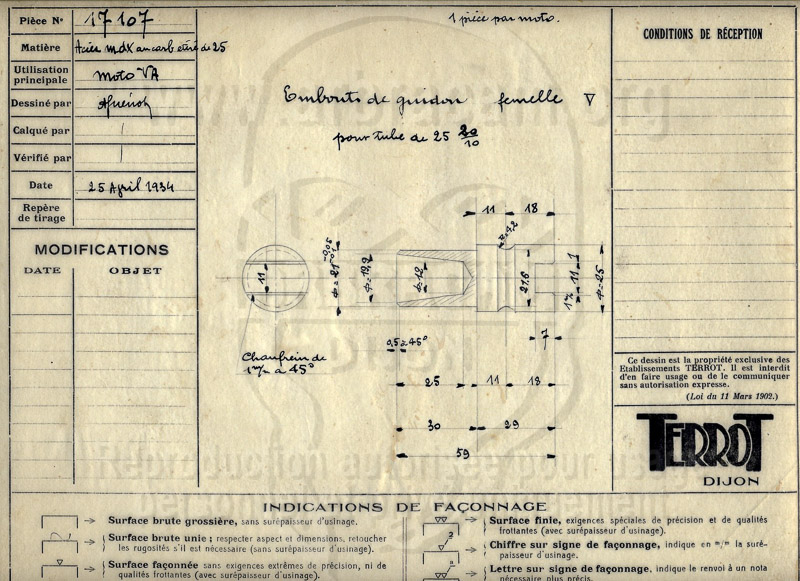 Pièce N° 17107
1 pièce par moto.
Matière Acier mdx au carb étiré de 25
Utilisation
principale Moto VA
Dessiné par
Calqué par
Vérifié par
Date 25 April 1934
Repère
de tirage
MODIFICATIONS
DATE OBJET
Embouts de guidon femelle
pour tube de 25 20/10
11 18
R=4,2
11
Φ=21 -0,05 -0,1
Φ=19,9
Φ=12
21,6
11
Φ=25
7
0,5 à 45°
Chanfrein de
1 m/m à 45°
25 11 18
30 29
59
CONDITIONS DE RÉCEPTION
Ce dessin est la propriété exclusive des
Etablissements TERROT. Il est interdit
d'en faire usage ou de le communiquer
sans autorisation expresse.
(Loi du 11 Mars 1902.)
TERROT
DIJON
INDICATIONS DE FAÇONNAGE
Surface brute grossière, sans surépaisseur d'usinage.
Surface brute unie; respecter aspect et dimensions, retoucher
les rugosités s'il est nécessaire (sans surépaisseur d'usinage).
Surface façonnée sans exigences extrêmes de précision, ni de
qualités frottantes (avec surépaisseur d'usinage).
Surface finie, exigences spéciales de précision et de qualités
frottantes (avec surépaisseur d'usinage).
2
Chiffre sur signe de façonnage, indique en m/m la suré-
paisseur d'usinage.
Lettre sur signe de façonnage, indique le renvoi à un nota
nécessaire plus précis.